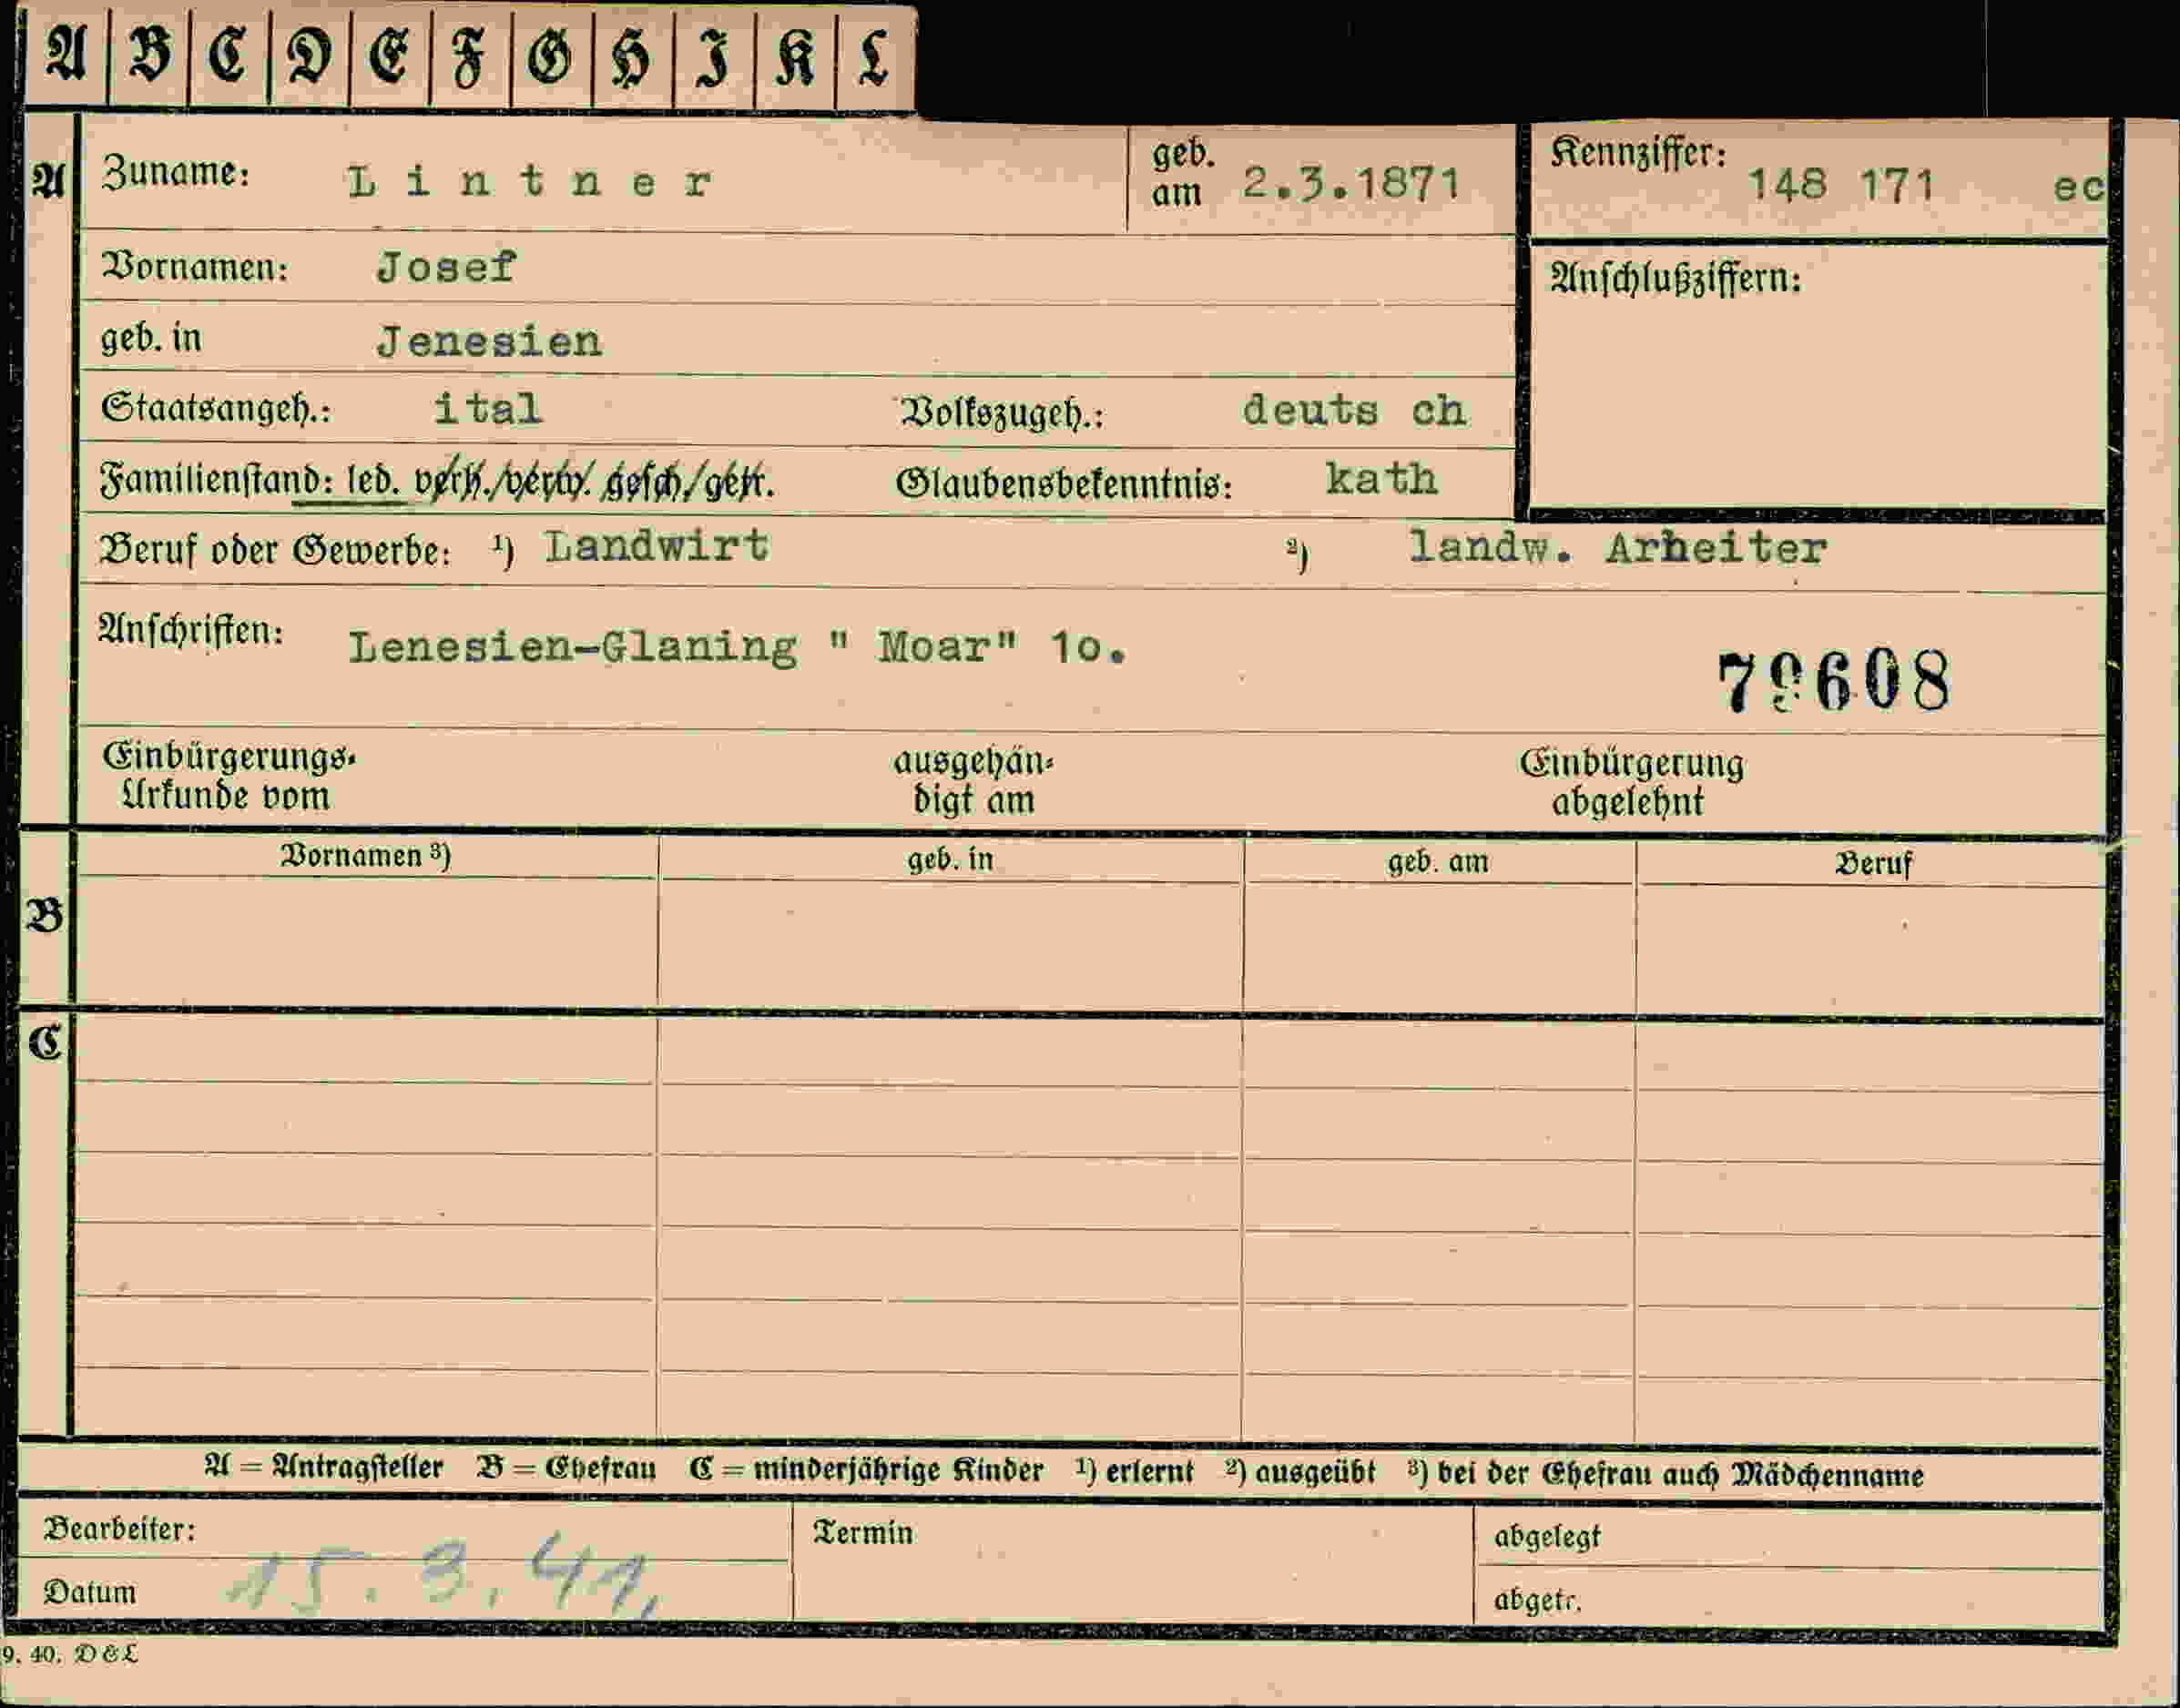 A B C D E F G H I K L
A Zuname: Lintner geb. am 2.3.1871 Kennziffer: 148 171 ec
Vornamen: Josef Anschlußziffern:
geb. in Jenesien
Staatsangeh.: ital Volkszugeh.: deuts ch
Familienstand: led. verh./verw. gesch./getr. Glaubensbekenntnis: kath
Beruf oder Gewerbe: ¹) Landwirt ²) landw. Arheiter
Anschriften: Lenesien-Glaning " Moar" 1o.
79608
Einbürgerungs- ausgehän- Einbürgerung
Urkunde vom digt am abgelehnt
Vornamen ³) geb. in geb. am Beruf
B
C
A = Antragsteller B = Ehefrau C = minderjährige Kinder ¹) erlernt ²) ausgeübt ³) bei der Ehefrau auch Mädchenname
Bearbeiter: Termin abgelegt
Datum 15. 3. 41, abgetr.
9. 40. D & L